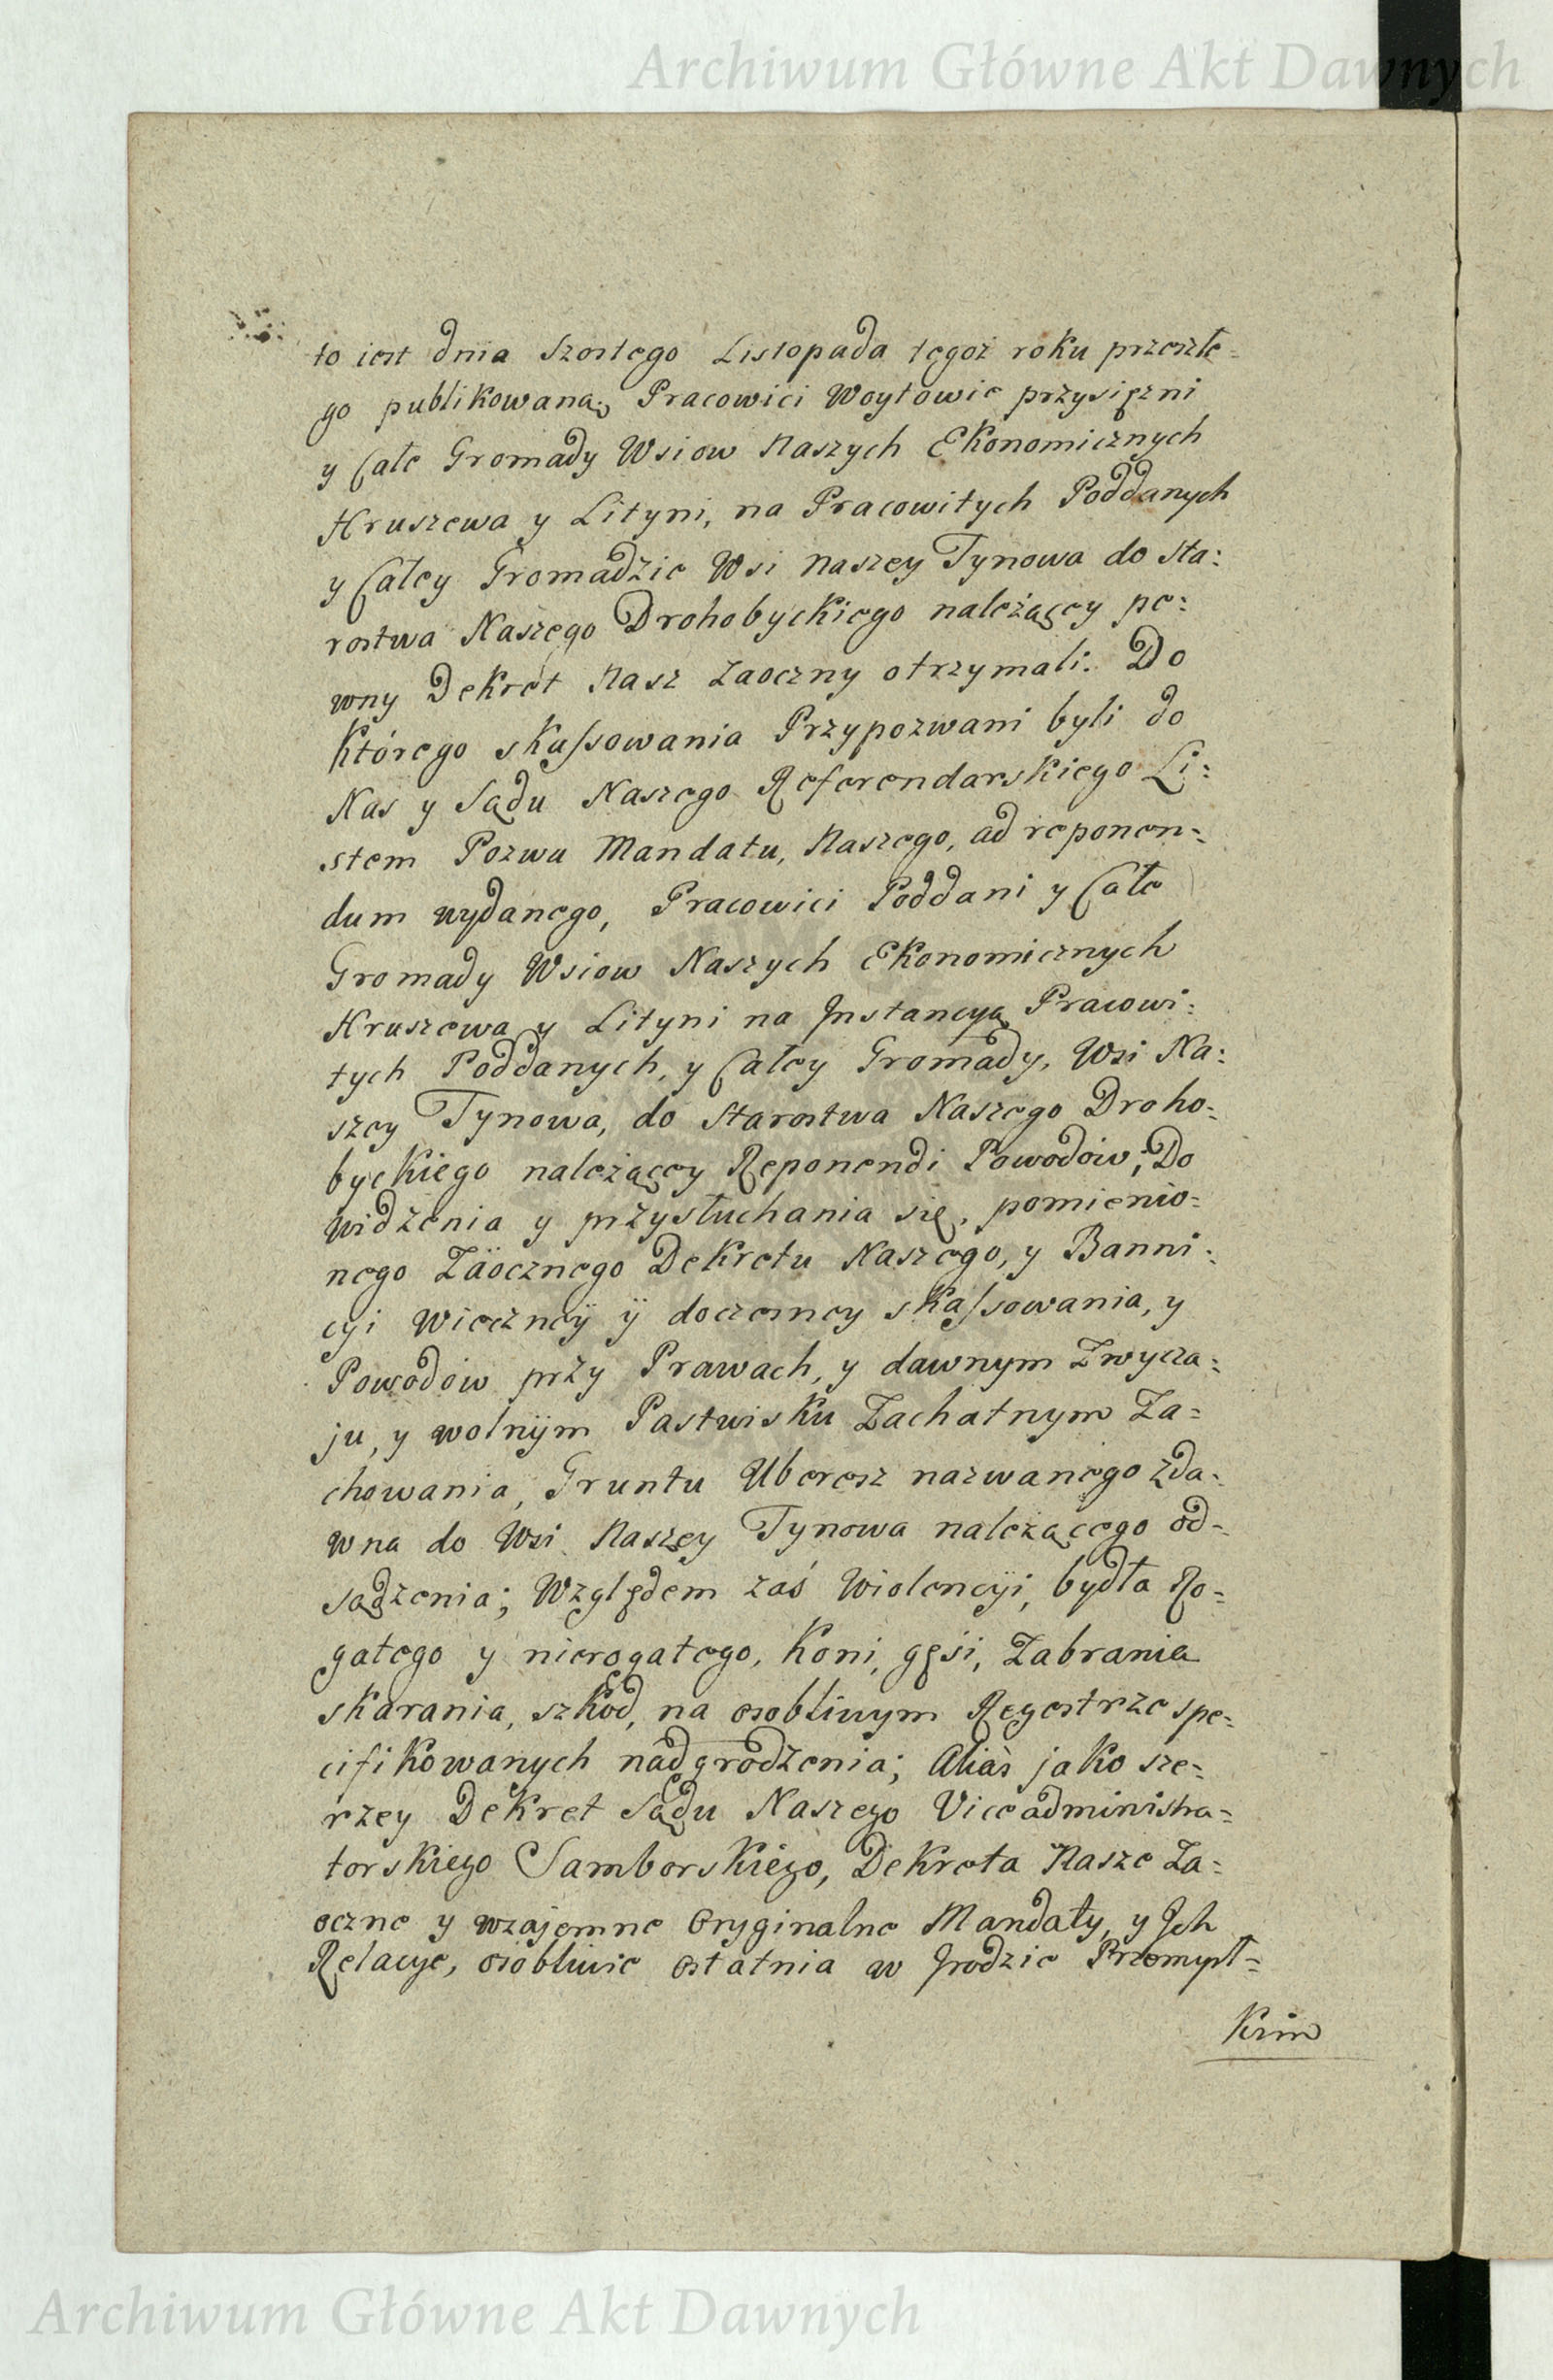 Archiwum Główne Akt Dawnych
to iest dnia Szostego Listopada tegoż roku przeszłe=
go publikowaną, Pracowici Woytowie przysiężni
y Całe Gromady Wsiow Naszych Ekonomicznych
Hruszewa y Lityni, na Pracowitych Poddanych
y Całey Gromadzie Wsi naszey Tynowa do Sta:
rostwa Naszego Drohobyckiego należącey pe:
wny Dekret Nasz Zaoczny otrzymali. Do
Którego skassowania Przypozwani byli do
Nas y Sądu Naszego Referendarskiego Li:
stem Pozwu Mandatu, Naszego, ad reponen=
dum wydanego, Pracowici Poddani y Całe
Gromady Wsiow Naszych Ekonomicznych
Hruszewa y Lityni na Jnstancyą Pracowi:
tych Poddanych, y Całey Gromady, Wsi Na:
szey Tynowa, do Starostwa Naszego Droho=
byckiego należącey Reponendi Powodow; Do
widzenia y przysłuchania się, pomienio=
nego Zaocznego Dekretu Naszego, y Banni:
cyi Wieczney ÿ doczesney skassowania, y
Powodow przy Prawach, y dawnym Zwycza:
ju, y wolnÿm Pastwisku Zachatnym Za=
chowania, Gruntu Uberesz nazwanego zda=
wna do Wsi Naszey Tynowa należącego od=
sądzenia; Względem zaś Wiolencÿi, bydła Ro=
gatego y nierogatego, Koni, gęsi, Zabrania
skarania, szkod, na osobliwym Regestrze spe=
cifikowanych nadgrodzenia; Aliàs jako sze=
rzey Dekret Sądu Naszego Viceadministra=
torskiego Samborskiego, Dekreta Nasze Za=
oczne y wzajemne Oryginalne Mandaty, y Jch
Relacye, osobliwie ostatnia w Grodzie Przemysl=
Kim
Archiwum Główne Akt Dawnych